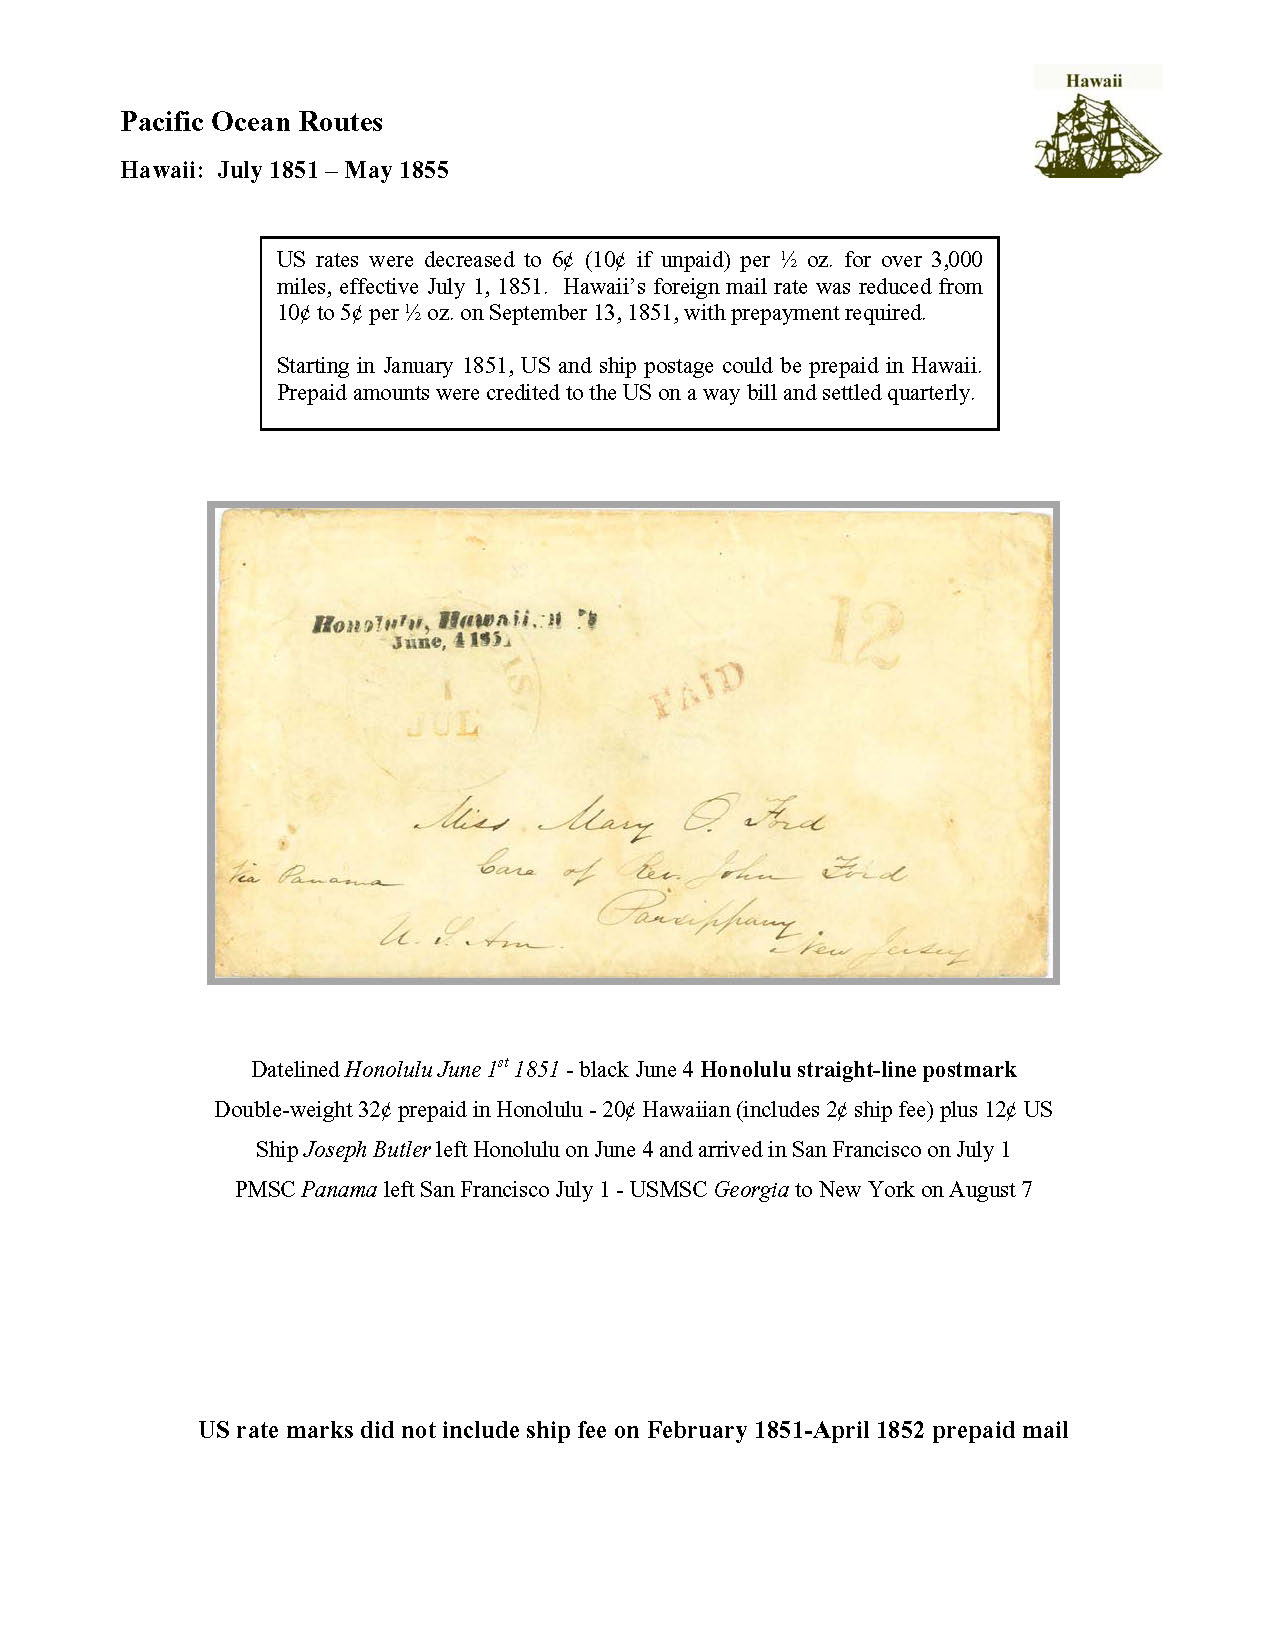 Hawaii
Pacific Ocean Routes
Hawaii: July 1851 – May 1855
US rates were decreased to 6¢ (10¢ if unpaid) per ½ oz. for over 3,000
miles, effective July 1, 1851. Hawaii’s foreign mail rate was reduced from
10¢ to 5¢ per ½ oz. on September 13, 1851, with prepayment required.
Starting in January 1851, US and ship postage could be prepaid in Hawaii.
Prepaid amounts were credited to the US on a way bill and settled quarterly.
Honolulu, Hawaii,
June, 4 185
12
PAID
1
JUL
Miss Mary O. Ford
Care of Rev. John Ford
Via Panama
Parsippany
U. S. Am.
New Jersey
Datelined Honolulu June 1st 1851 - black June 4 Honolulu straight-line postmark
Double-weight 32¢ prepaid in Honolulu - 20¢ Hawaiian (includes 2¢ ship fee) plus 12¢ US
Ship Joseph Butler left Honolulu on June 4 and arrived in San Francisco on July 1
PMSC Panama left San Francisco July 1 - USMSC Georgia to New York on August 7
US rate marks did not include ship fee on February 1851-April 1852 prepaid mail